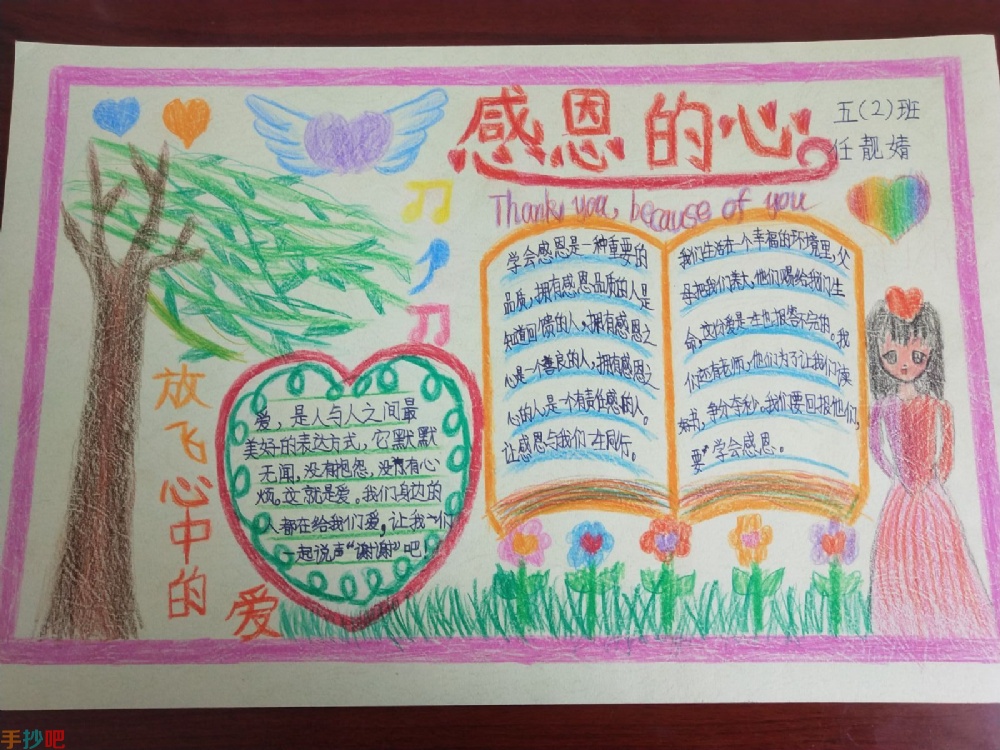 感恩的心
五(2)班
任靓婧
Thank you, because of you
学会感恩是一种重要的
品质,拥有感恩品质的人是
知道回馈的人,拥有感恩之
心是一个善良的人,拥有感恩之
心的人是一个有责任感的人。
让感恩与我们一生同行。
我们生活在一个幸福的环境里,父
母把我们养大,他们赐给我们生
命,这份爱是一生也报答不完的。我
们还有老师,他们为了让我们读
好书,争分夺秒。我们要回报他们,
要学会感恩。
放飞心中的
爱
爱,是人与人之间最
美好的表达方式,它默默
无闻,没有抱怨,没有心
烦。这就是爱。我们身边的
人都在给我们爱,让我们
一起说声“谢谢”吧!
手抄吧